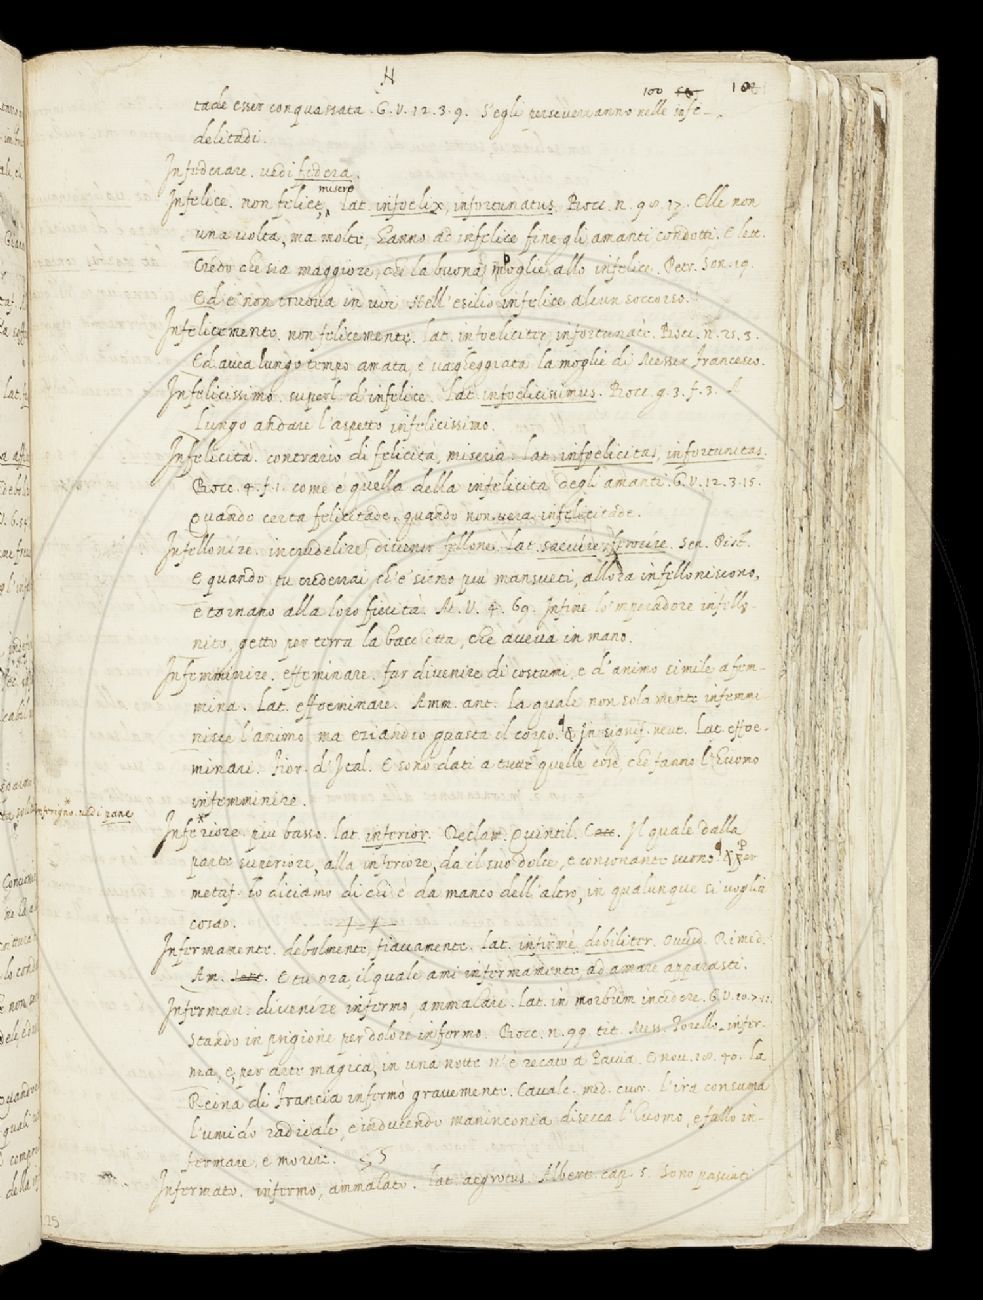 H
100 101
tade esser conquassata. G.V. 12. 3. 9. S'egli persevereranno nelle infe-
delitadi.
Infederare. vedi federa.
misero
Infelice. non felice, lat. infoelix, infortunatus. Bocc. n. 98. 17. Elle non
una volta, ma molte, hanno ad infelice fine gli amanti condotti. E lett.
Credo che sia maggiore, che la buona moglie allo infelice. Petr. Son. 19.
Ed e' non truova in voi Nell'esilio infelice alcun soccorso.
Infelicemente. non felicemente. lat. infoeliciter, infortunatè. Bocc. n. 21. 3.
Ed avea lungo tempo amata, e vagheggiata la moglie di Messer Francesco.
Infelicissimo. superl. d'infelice. Lat. infoelicissimus. Bocc. g. 3. f. 3. A
lungo andare l'aspetto infelicissimo.
Infelicità. contrario di felicità, miseria. lat. infoelicitas, infortunitas.
Bocc. 4. f. 1. come è quella della infelicità degl'amanti. G.V. 12. 3. 15.
Quando certa felicitade, quando non vera infelicitade.
Infellonire. incrudelire, divenir fellone. lat. saevire, ferocire. Sen. Pist.
E quando tu crederai ch'e' sieno più mansueti, allora infelloniscono,
e tornano alla loro fierità. M.V. 4. 69. Infine lo 'mperadore infello-
nito, gettò per terra la bacchetta, che aveva in mano.
Infemminire. effeminare. far divenire di costumi, e d'animo simile a fem-
mina. Lat. effoeminare. Amm. ant. La quale non solamente infemmi-
nisce l'animo ma eziandio guasta il corpo. & In signif. neut. Lat. effoe-
minari. Fior. d'Ital. E sono dati a tutte quelle cose, che fanno l'huomo
infemminire.
Inferigno. vedi pane
Inferiore. più basso. lat. inferior. Declam. Quintil. C. Il quale dalla
parte superiore, alla inferiore, da il suo dolce, e consonante suono. & per
metaf. lo diciamo di chi è da manco dell'altro, in qualunque si voglia
cosa.
Infermamente. debolmente, fiavamente. lat. infirmè, debiliter. Ovvid. Rimed.
Am. E tu ora, il quale ami infermamente, ad amare apparasti.
Infermare. divenire infermo, ammalare. lat. in morbum incidere. G.V. 10. 7.
Stando in prigione per dolore infermo. Bocc. n. 99. tit. Mess. Torello infer-
ma, e, per arte magica, in una notte n'è recato a Pavia. E nov. 18. 40. La
Reina di Francia infermò gravemente. Cavalc. med. cuor. L'ira consuma
l'umido radicale, e inducendo maninconia disecca l'huomo, e fallo in-
fermare, e morire.
Infermato. infermo, ammalato. lat. aegrotus. Albert. cap. 5. Sono pasciuti
25